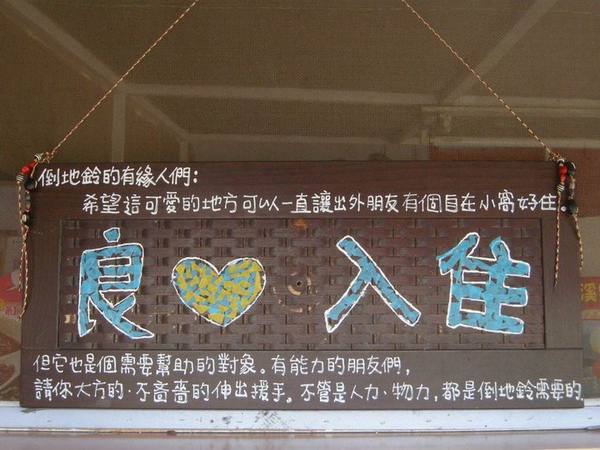 倒地鈴的有緣人們:
希望這可愛的地方可以一直讓出外朋友有個自在小窩好住
良 入住
但它也是個需要幫助的對象。有能力的朋友們,
請你大方的·不吝嗇的伸出援手。不管是人力、物力,都是倒地鈴需要的.
溪